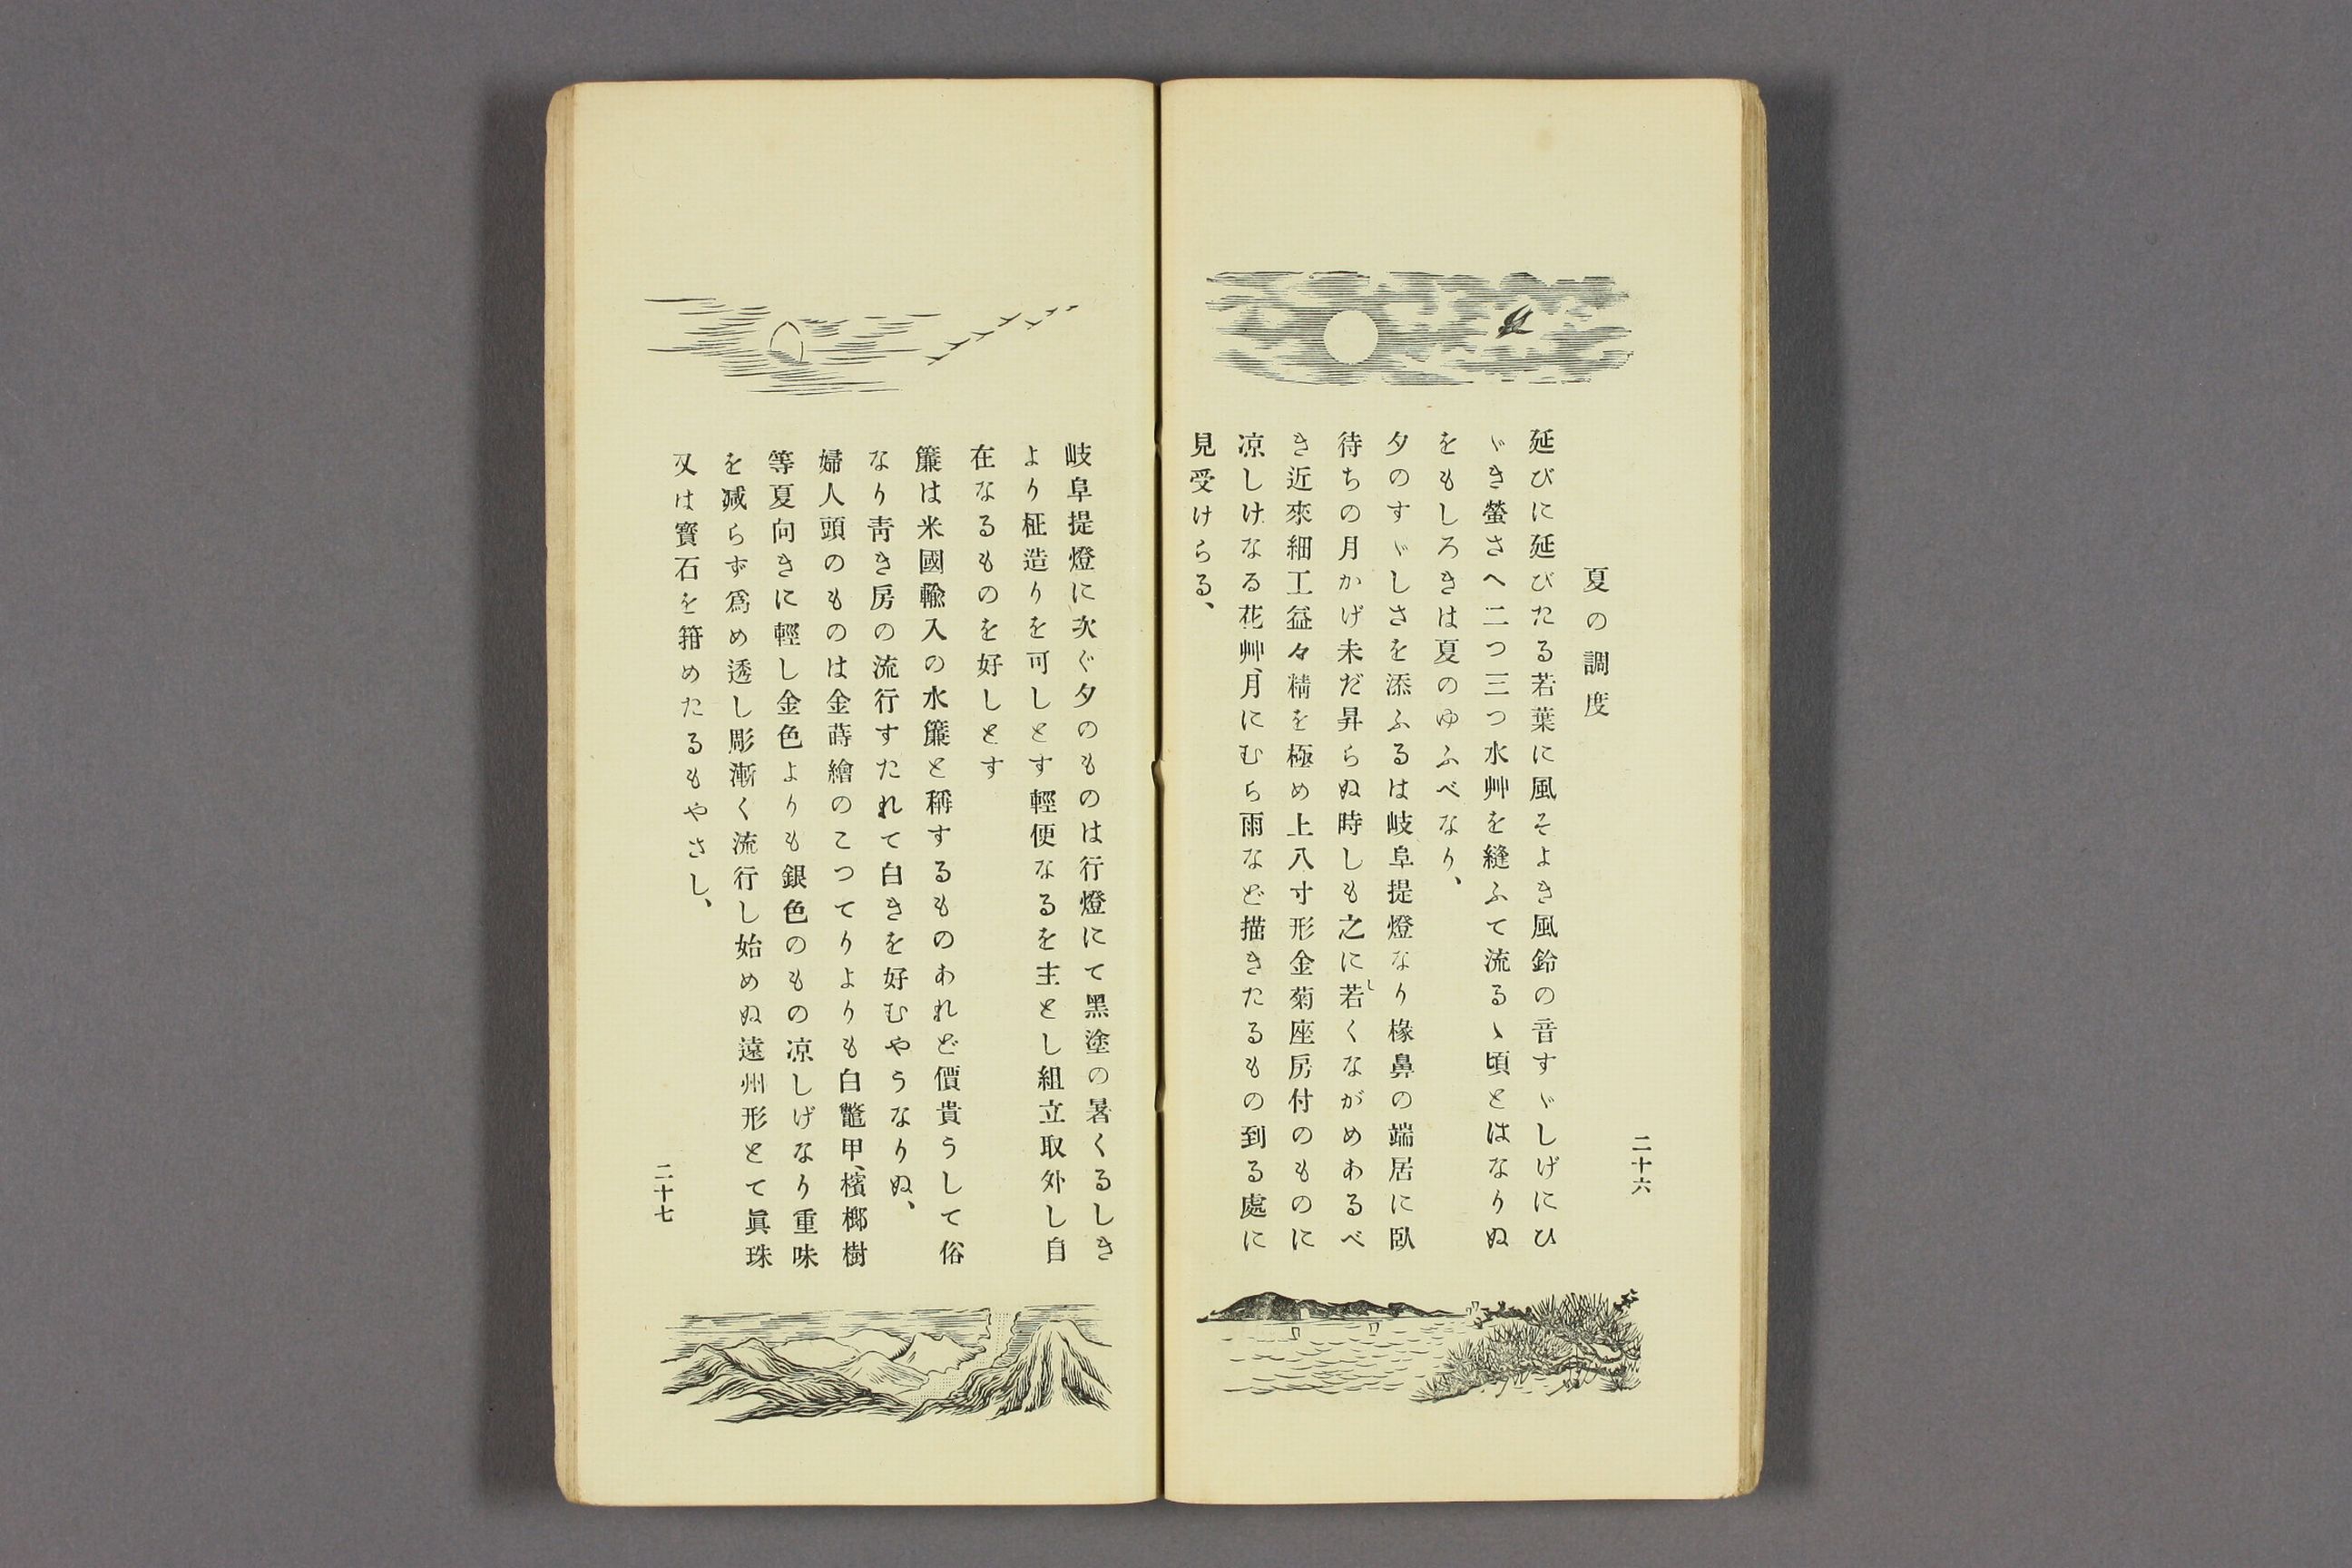 二十六
夏の調度
延びに延びたる若葉に風そよき風鈴の音すゞしげにひ
ゞき螢さへ二つ三つ水艸を縫ふて流るゝ頃とはなりぬ
をもしろきは夏のゆふべなり、
夕のすゞしさを添ふるは岐阜提燈なり椽鼻の端居に臥
待ちの月かげ未だ昇らぬ時しも之に若くながめあるべ
し
き近來細工益々精を極め上八寸形金菊座房付のものに
凉しけなる花艸、月にむら雨など描きたるもの到る處に
見受けらる、
岐阜提燈に次ぐ夕のものは行燈にて黑塗の暑くるしき
より柾造りを可しとす輕便なるを主とし組立取外し自
在なるものを好しとす
簾は米國輸入の水簾と稱するものあれど價貴うして俗
なり靑き房の流行すたれて白きを好むやうなりぬ、
婦人頭のものは金蒔繪のこつてりよりも白鼈甲、檳榔樹
等夏向きに輕し金色よりも銀色のもの凉しげなり重味
を减らず爲め透し彫漸く流行し始めぬ遠州形とて眞珠
又は寶石を箝めたるもやさし、
二十七